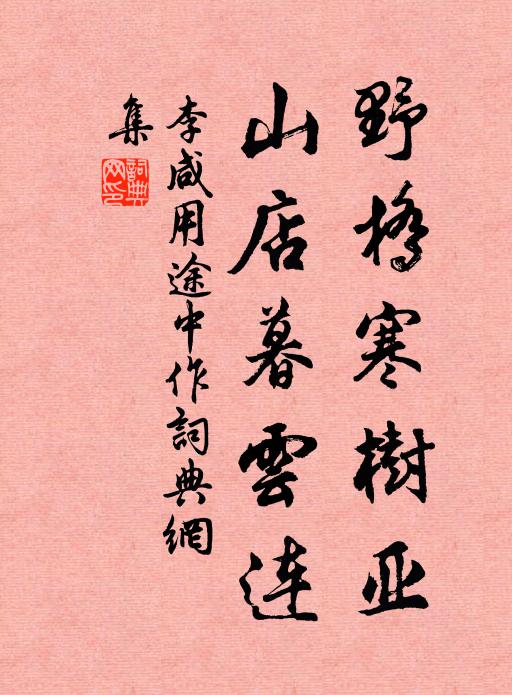 野橋寒樹亚
山店暮雲連
李咸用途中作詞典網
集
詞典
网印